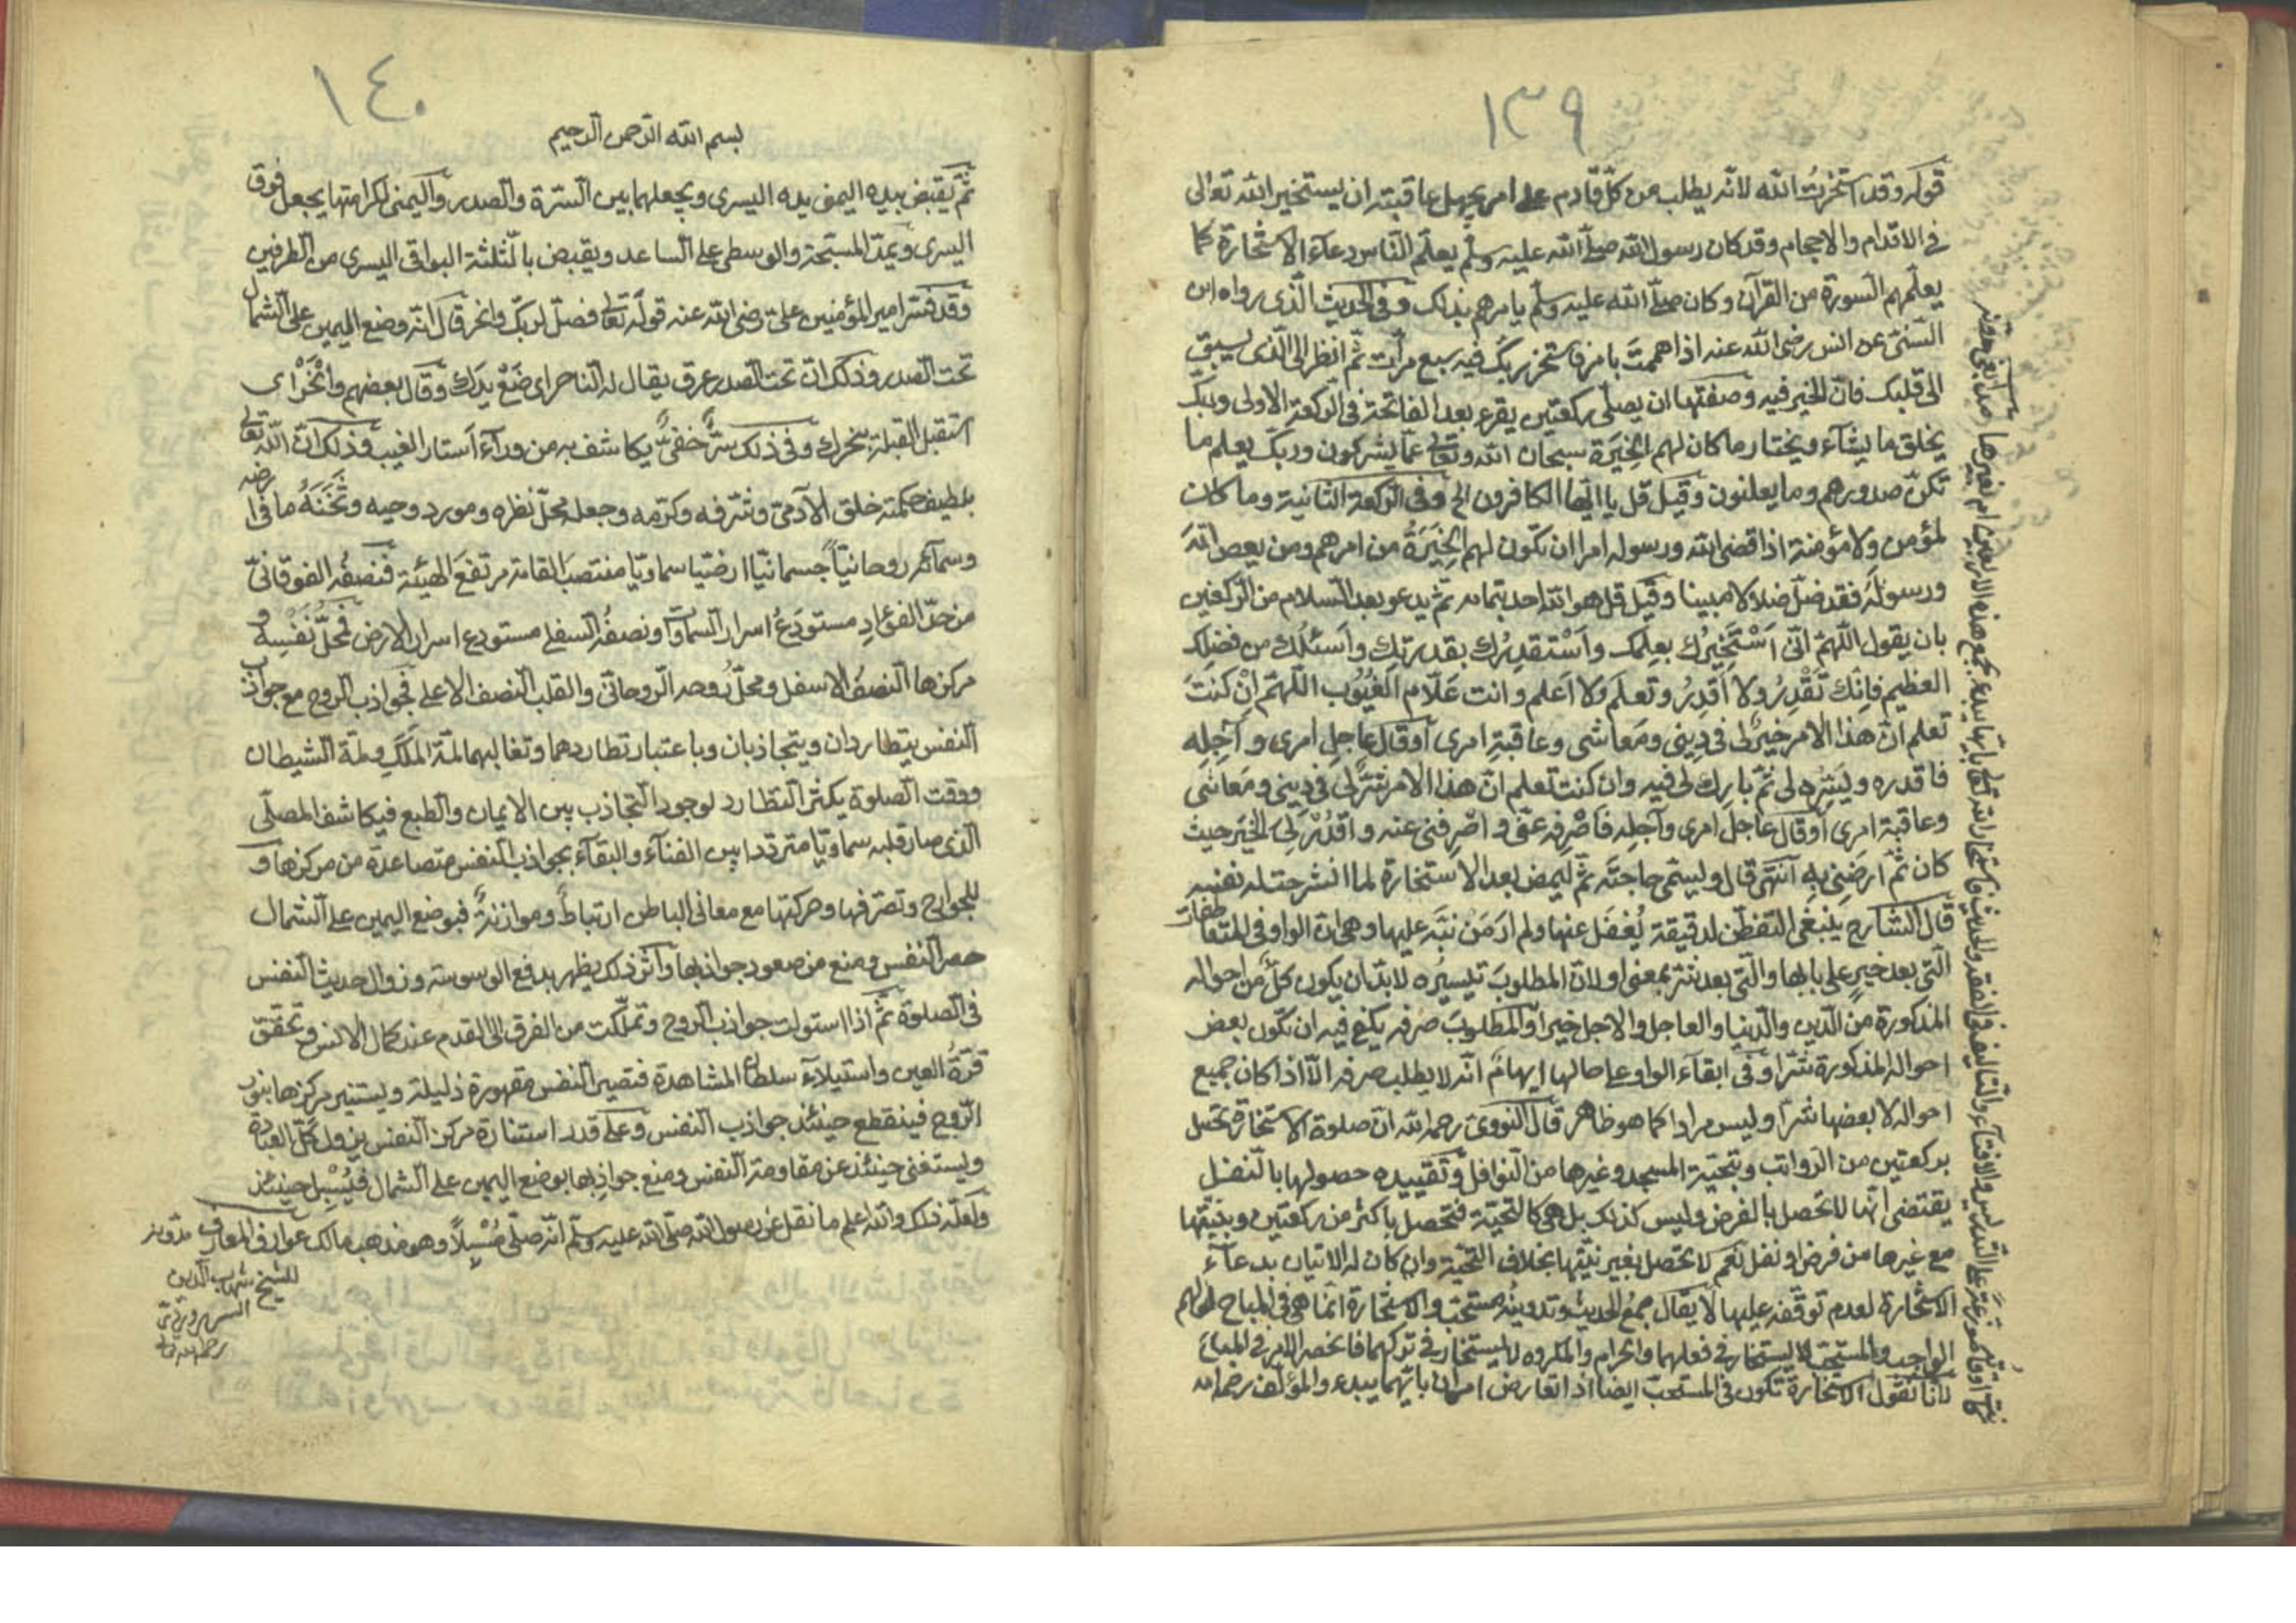 ١٣٩
قوله وقد استخرت الله لانه يطلب من كل قادم على امر يجهل عاقبته ان يستخير الله تعالى
في الاقدام والاحجام وقد كان رسول الله صلى الله عليه وسلم يعلم الناس دعاء الاستخارة كما
يعلمهم السورة من القرآن وكان صلى الله عليه وسلم يامرهم بذلك وفي الحديث الذى رواه ابن
السنى عن انس رضى الله عنه اذا هممت بامر فاستخر ربك فيه سبع مرات ثم انظر الى الذى يسبق
الى قلبك فان الخير فيه وصفتها ان يصلى ركعتين يقرء بعد الفاتحة في الركعة الاولى وربك
يخلق ما يشاء ويختار ما كان لهم الخِيَرَة سبحان الله وتعالى عما يشركون وربك يعلم ما
تكن صدورهم وما يعلنون وقيل قل يا ايها الكافرون الخ وفى الركعة الثانية وما كان
لمؤمن ولا مؤمنة اذا قضى الله ورسوله امرا ان تكون لهم الخِيَرَةُ من امرهم ومن يعص الله
ورسولَه فقد ضل ضلالا مبينا وقيل قل هو الله احد بتمامه ثم يدعو بعد السلام من الركعتين
بان يقول اللهم انى اَسْتَخِيرُك بعِلمك واَسْتقدِرُك بقدرتك واَسئلُك من فضلِك
العظيم فاِنك تَقْدِرُ ولا اَقدِرُ وتعلم ولا اَعلم وانت عَلّام الغُيُوب اللهم انْ كنتَ
تعلم ان هذا الامر خيرٌ لى في دِينى ومَعاشى وعاقبةِ امرى اَو قال عاجِلِ امرى وآجِلِه
فاقدره ويَسِّره لى ثم بارك لى فيه وان كنت تعلم ان هذا الامر شرٌّ لى في دينى ومَعاشى
وعاقبة امرى اَو قال عاجل امرى وآجلِه فاَصْرِفه عنى واصْرِفنى عنه واقدُرْ لى الخيرَ حيث
كان ثم ارضنى به انتهى قال وليسمى حاجته ثم ليمض بعد الاستخارة لما انشرحت له نفسه
قال الشارح ينبغى التفطن لدقيقة يُغفَل عنها ولم ارَ مَن نبَّه عليها وهى ان الواو فى المتعاطفات
التى بعد خيرٍ على بابها والتى بعد شر بمعنى او لان المطلوبَ تيسيرُه لابد ان يكون كلٌ من احواله
المذكورة من الدين والدنيا والعاجل والاجل خيرا والمطلوبَ صرفه يكفى فيه ان يكون بعض
احواله المذكورة شرا وفى ابقاء الواو على حالها ايهام انه لا يطلب صرفه الّا اذا كان جميع
احواله لا بعضها شرا وليس مرادا كما هو ظاهر قال النووى رحمه الله ان صلوة الاستخارة تحصل
بركعتين من الرواتب وبتحية المسجد وغيرها من النوافل وتقييده حصولها بالنفل
يقتضى انها لا تحصل بالفرض وليس كذلك بل هى كالتحية فتحصل باكثر من ركعتين وبنيتها
مع غيرها من فرض او نفل نعم لا تحصل بغير نيتها بخلاف التحية وان كان له الاتيان بدعاء
الاستخارة لعدم توقفه عليها لا يقال جمعُ الحديث وتدوينُه مستحب والاستخارة انما هى في المباح
الواجب والمستحب لا يستخار في فعلهما والحرام والمكروه لا يستخار في تركهما فانحصر الامر في المباح
لانا نقول الاستخارة تكون في المستحب ايضا اذا تعارض امران بايهما يبدء والمؤلف رحمه الله
١٤٠
بسم الله الرحمن الرحيم
ثم يقبض بيده اليمنى يده اليسرى ويجعلهما بين السرة والصدر واليمنى لكرامتها يجعل فوق
اليسرى ويمد المسبحة والوسطى على الساعد ويقبض بالثلثة البواقى اليسرى من الطرفين
وقد فسر امير المؤمنين على رضى الله عنه قوله تعالى فصل لربك وانحر قال انه وضع اليمين على الشمال
تحت الصدر وذلك ان تحت الصدر عرق يقال له الناحر اى ضَعْ يدك وقال بعضهم وانْحَرْ اى
استقبل القبلة بنحرك وفى ذلك سرٌّ خفىٌّ يكاشف به من وراء اَستار الغيب وذلك ان الله تعالى
بلطيف حكمته خلق الآدمى وشرفه وكرمه وجعله محل نظره ومورد وحيه ونُخْبَةُ ما فى ارضه
وسمآئه روحانيًا جسمانيًا ارضيا سماويا منتصبَ القامة مرتفعَ الهيئة فنصفُه الفوقانىّ
من حد الفؤادِ مستودَعُ اسرار السماوات ونصفُه السفلى مستودع اسرار الارض فمحلُّ نَفْسِهُ و
مركزها النصفُ الاسفل ومحلُّ رُوحه الروحانى والقلب النصف الاعلى فجواذب الروح مع جواذب
النفس يتطاردان ويتجاذبان وباعتبار تطاردهما وتغالبهما لمّة المَلَكِ ولمة الشيطان
ووقت الصلوة يكثر التطارد لوجود التجاذب بين الايمان والطبع فيكاشف المصلّى
الذى صار قلبه سماويا مترددا بين الفناء والبقاء بجواذب النفس متصاعدة من مركزها و
للجوارح وتصرفها وحركتها مع معانى الباطن ارتباطٌ وموازنةٌ فبوضع اليمين على الشمال
حصر النفس ومنع من صعود جواذبها وأثر ذلك يظهر بدفع الوسوسة وزوال حديث النفس
فى الصلوة ثم اذا استولت جواذب الروح وتملّكت من الفرق الى القدم عند كمال الانس وتحقق
قرةُ العين واستيلآء سلطان المشاهدة فتصير النفس مقهورة ذليلة ويستنير مركزها بنور
الروح فينقطع حينئذ جواذب النفس وعلى قدر استنارة مركز النفس يزول كلّ العبادة
ويستغنى حينئذ عن مقاومة النفس ومنع جواذِبها بوضع اليمين على الشمال فيُسْبِل حينئذ
ولعلّ ذلك والله اعلم ما نقل عن رسول الله صلى الله عليه وسلم انه صلّى مُسْبِلًا وهو مذهب مالك عوارف المعارف
للشيخ شهاب الدين
السهروردى